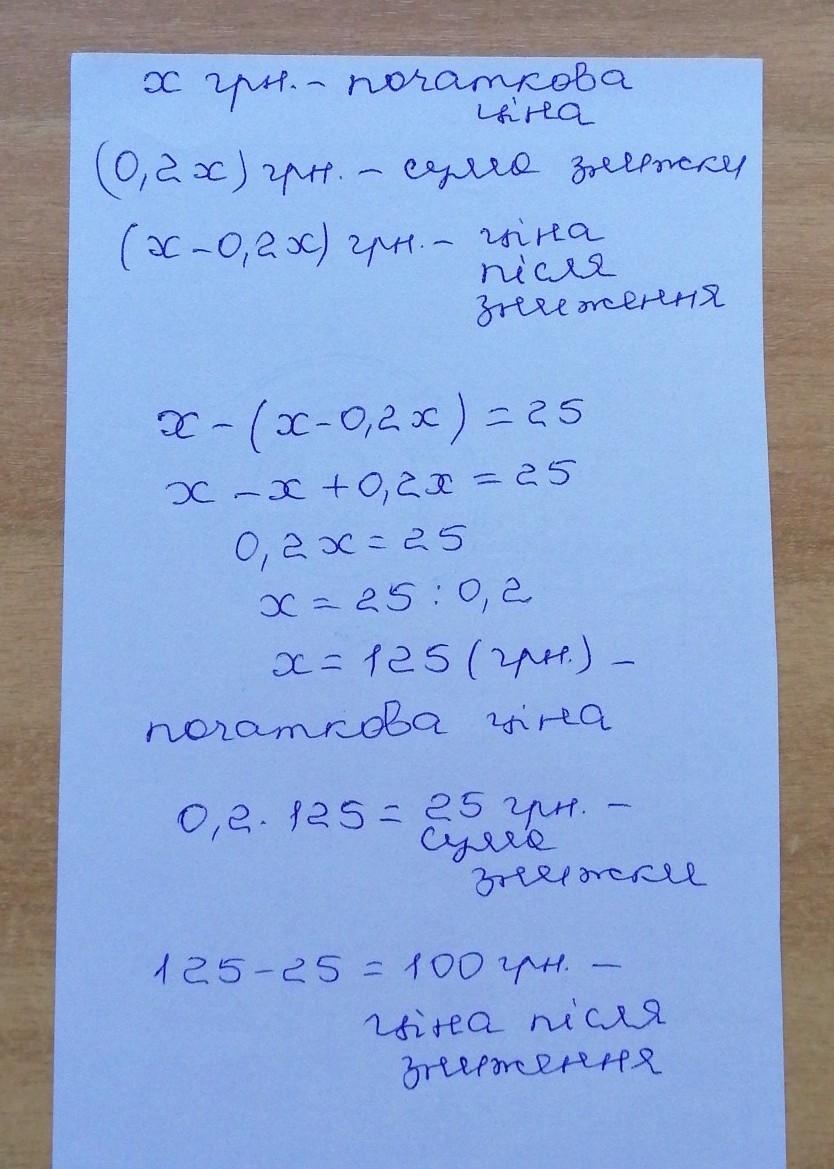 x грн. – початкова
ціна
(0,2x) грн. – сума знижки
(x – 0,2x) грн. – ціна
після
зниження
x – (x – 0,2x) = 25
x – x + 0,2x = 25
0,2x = 25
x = 25 : 0,2
x = 125 (грн.) –
початкова ціна
0,2 · 125 = 25 грн. –
сума
знижки
125 – 25 = 100 грн. –
ціна після
зниження